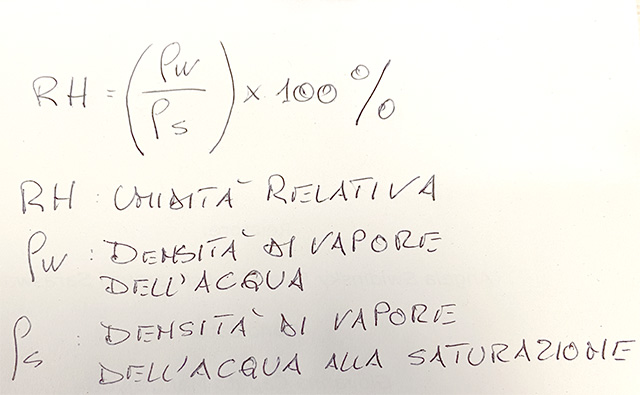 RH = (ρw / ρs) × 100 %
RH : UMIDITÀ RELATIVA
ρw : DENSITÀ DI VAPORE
DELL'ACQUA
ρs : DENSITÀ DI VAPORE
DELL'ACQUA ALLA SATURAZIONE